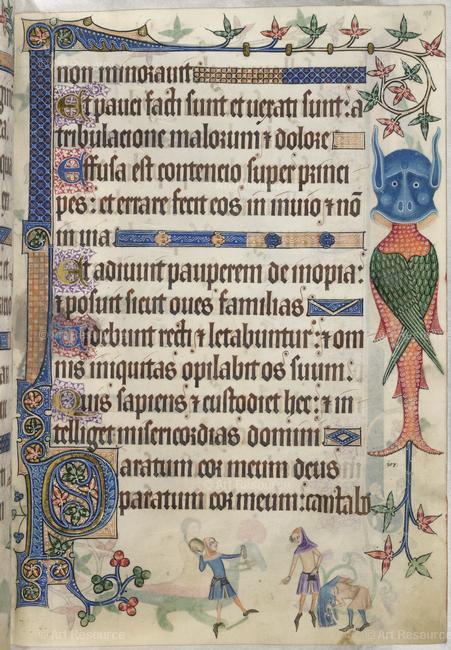 non minorauit
Et pauci facti sunt et uexati sunt: a
tribulacione malorum ⁊ dolore
Effusa est contencio super princi
pes: et errare fecit eos in inuio ⁊ nō
in uia
Et adiuuit pauperem de inopia:
⁊ posuit sicut oues familias
Uidebunt recti ⁊ letabuntur: ⁊ om
nis iniquitas opilabit os suum.
Quis sapiens ⁊ custodiet hec: ⁊ in
telliget misericordias domini
Paratum cor meum deus
paratum cor meum: cantabo
© Art Resource
© Art Resource